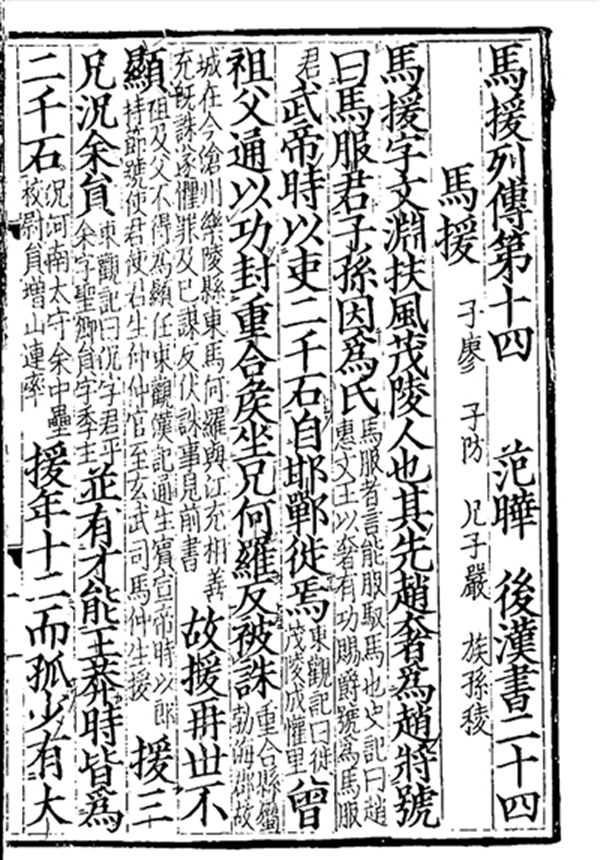 馬援列傳第十四 范曄 後漢書二十四
馬援 子廖 子防 兄子嚴 族孫稜
馬援字文淵扶風茂陵人也其先趙奢爲趙將號
曰馬服君子孫因爲氏馬服者言能服馭馬也史記曰趙惠文王以奢有功賜爵號爲馬服
君武帝時以吏二千石自邯鄲徙焉東觀記曰徙茂陵成懽里曾
祖父通以功封重合侯坐兄何羅反被誅重合縣屬勃海郡故
城在今滄州樂陵縣東馬何羅與江充相善充旣誅遂懼罪及己謀反伏誅事見前書故援再世不
顯祖及父不得爲顯任東觀漢記通生賓宣帝時以郎持節號使君使君生仲仲官至玄武司馬仲生援援三
兄況余員東觀記曰況字君平余字聖卿員字季主並有才能王莽時皆爲
二千石況河南太守余中壘校尉員增山連率援年十二而孤少有大